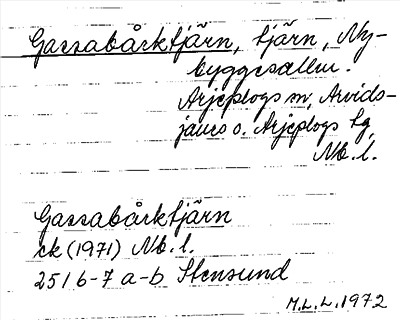 Gassabårktjärn, tjärn, Ny-
byggesallm.
Arjeplogs sn, Arvids-
jaurs o. Arjeplogs tg,
Nb. l.
Gassabårktjärn
ek (1971) Nb. l.
25I 6-7 a-b Stensund
M.L.L. 1972